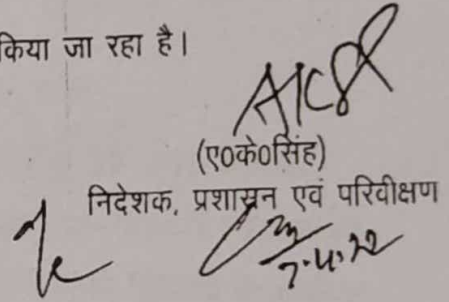 किया जा रहा है।
(ए०के०सिंह)
निदेशक, प्रशासन एवं परिवीक्षण
7.4.22